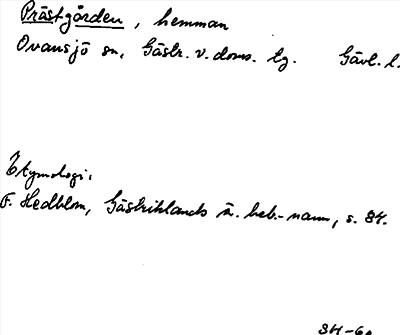 Prästgården, hemman
Ovansjö sn, Gästr. v. doms. tg. Gävl. l.
Etymologi.
F. Hedblom, Gästriklands ä. beb.-namn, s. 84.